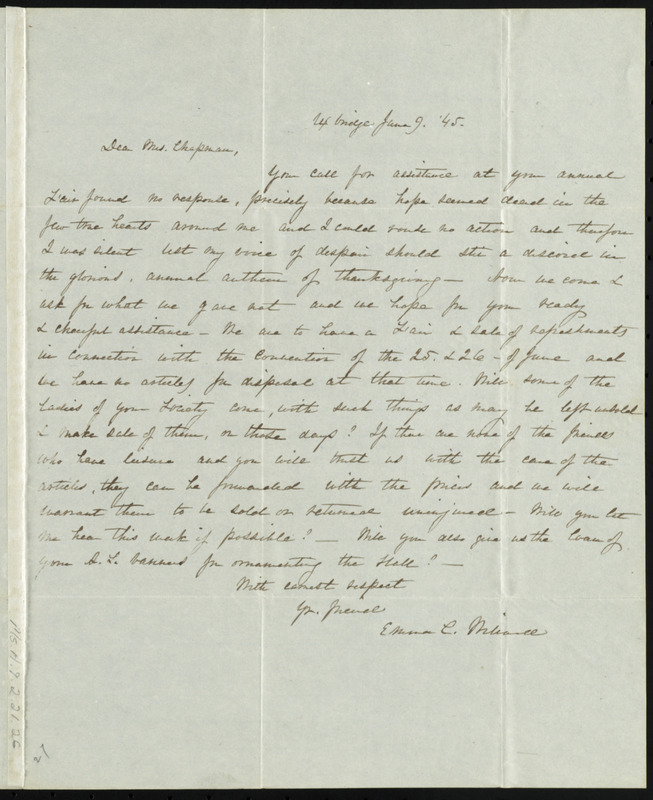 Uxbridge June 9. '45.
Dear Mrs. Chapman,
Your call for assistance at your annual
Fair found no response, precisely because hope seemed dead in the
few true hearts around me and I could rouse no action and therefore
I was silent lest my voice of despair should stir a discord in
the glorious, annual anthem of thanksgiving — Now we come &
ask for what we gave not and we hope for your ready
& cheerful assistance — We are to have a Fair & Sale of refreshments
in connection with the Convention of the 25. & 26 - of June and
we have no articles for disposal at that time. Will some of the
Ladies of your Society come, with such things as may be left unsold
& make sale of them, on those days? If there are none of the friends
who have leisure and you will trust us with the care of the
articles, they can be forwarded with the prices and we will
warrant them to be sold or returned uninjured — Will you let
me hear this week if possible? — Will you also give us the loan of
your A. S. banners for ornamenting the Hall? —
With earnest respect
Yr. friend
Emma C.
Ms.A.9.2.21.26
27